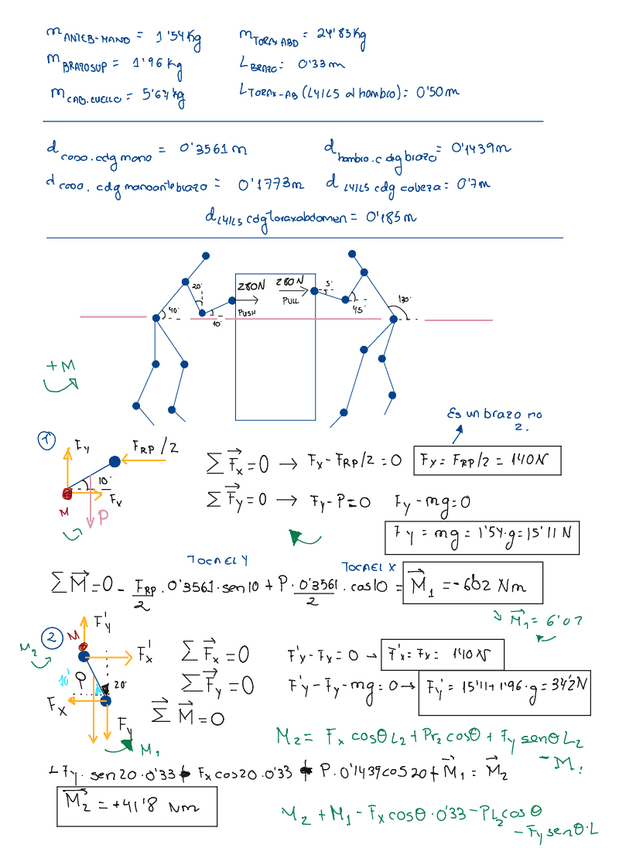 m ANTEB-MANO = 1'54 Kg
m TORAX ABD = 24'83 Kg
m BRAZO SUP = 1'96 Kg
L BRAZO = 0'33 m
m CAB. CUELLO = 5'67 Kg
L TORAX-AB (L4/L5 al hombro) = 0'50 m
d codo. cdg mano = 0'3561 m
d hombro. cdg brazo = 0'1439 m
d codo. cdg manoantebrazo = 0'1773 m
d L4/L5 cdg cabeza = 0'7 m
d L4/L5 cdg toraxabdomen = 0'185 m
20°
280N
280N
PUSH
PULL
40°
10°
45°
130°
+M
Es un brazo no 2.
1
Fy
FRP/2
10°
Fx
M
P
ΣF⃗x = 0 → Fx - FRP/2 = 0
Fx = FRP/2 = 140 N
ΣF⃗y = 0 → Fy - P = 0
Fy - mg = 0
Fy = mg = 1'54·g = 15'11 N
TOCA EL Y
TOCA EL X
ΣM⃗ = 0 - FRP/2 · 0'3561 · sen10 + P · 0'3561/2 · cos10 = M⃗1 = -6'02 Nm
M⃗1 = 6'02
2
F'y
M
M2
F'x
P
20°
Fx
Fy
M1
ΣF⃗x = 0
F'x - Fx = 0 → F'x = Fx = 140 N
ΣF⃗y = 0
F'y - Fy - mg = 0 → F'y = 15'11 + 1'96·g = 34'2 N
ΣM⃗ = 0
M2 = Fx cosθ L2 + Pr2 cosθ + Fy senθ L2 - M1
Fy · sen20 · 0'33 + Fx cos20 · 0'33 + P · 0'1439 cos20 + M⃗1 = M⃗2
M⃗2 = +41'8 Nm
M2 + M1 - Fx cosθ · 0'33 - PL2 cosθ
- Fy senθ · L